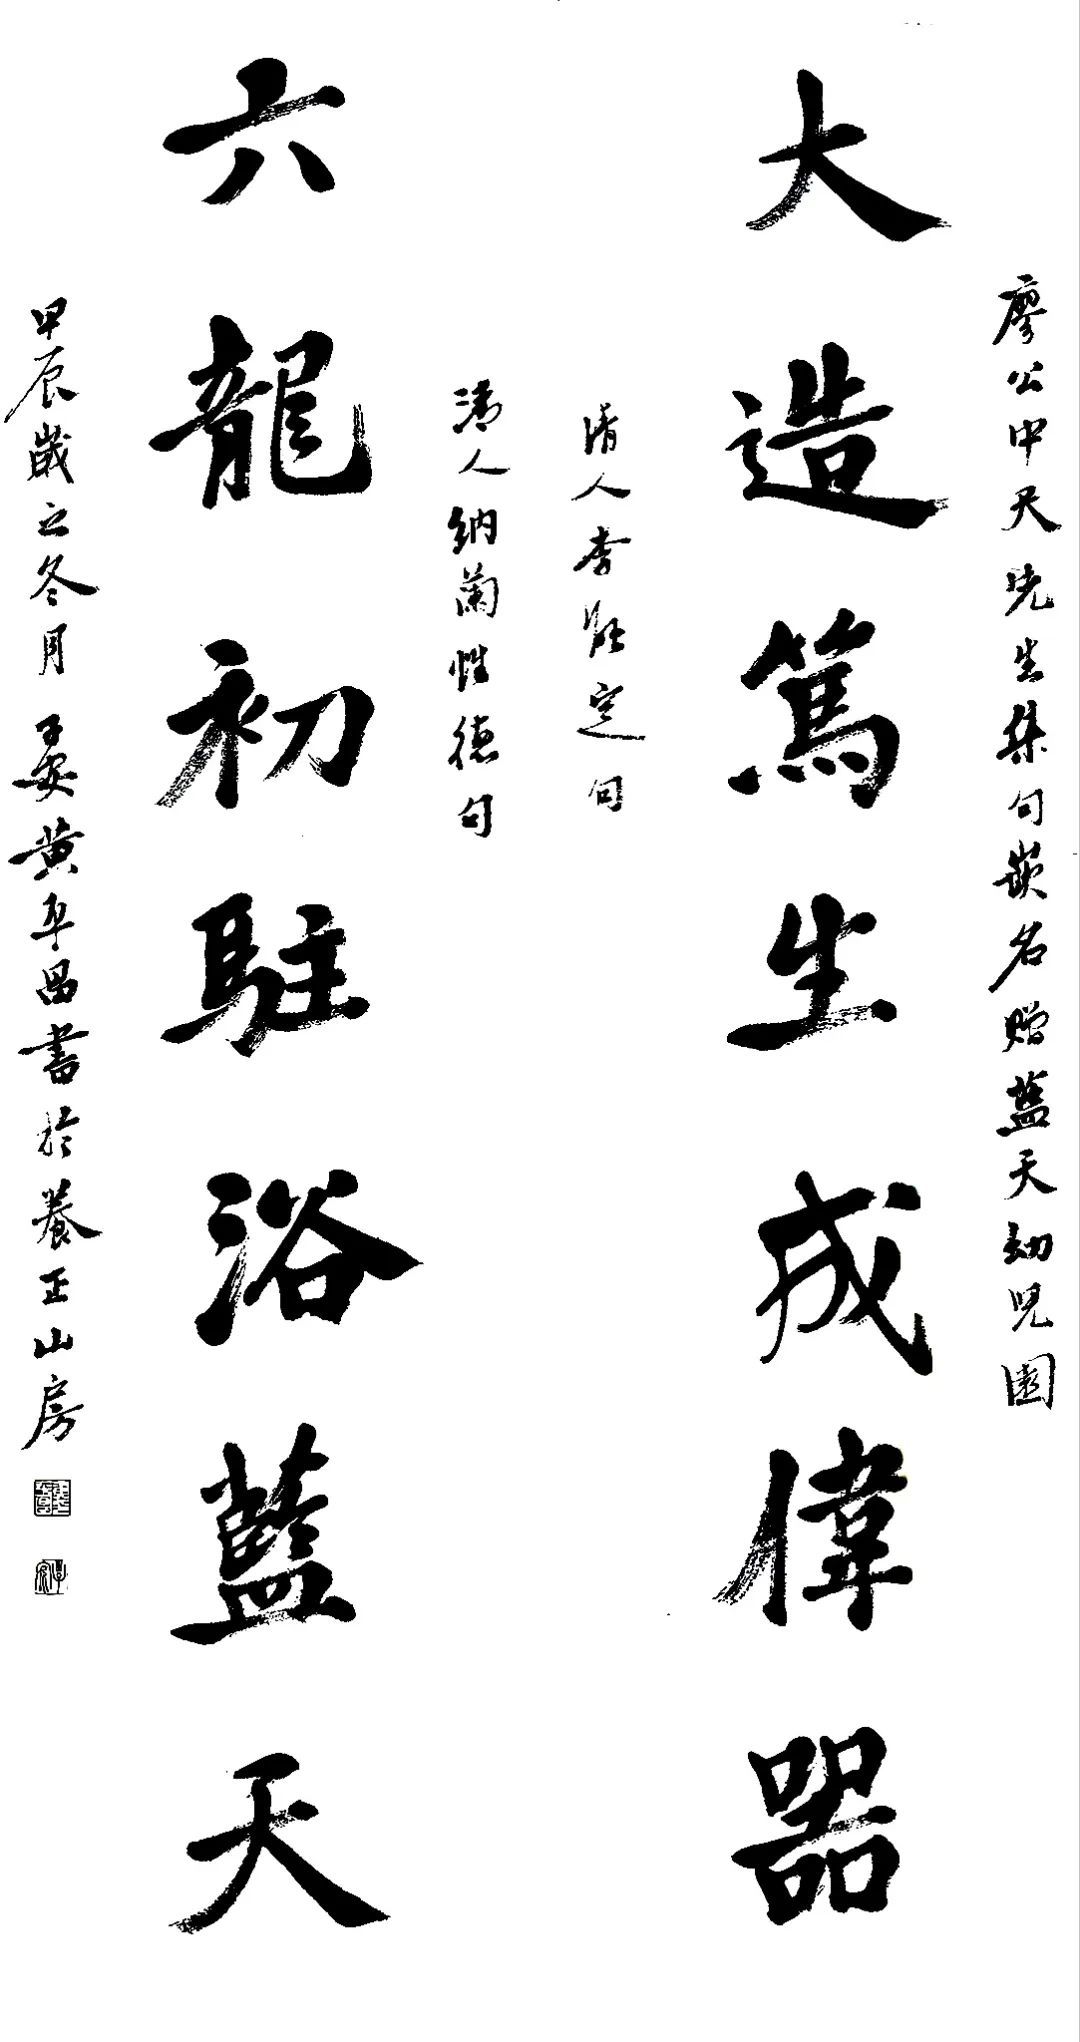 廖公中天先生集句嵌名赠藍天幼兒園
大造篤生成偉器
清人李定句
清人納蘭性德句
六龍初駐浴藍天
甲辰歲之冬月子安黄昌書於養正山房